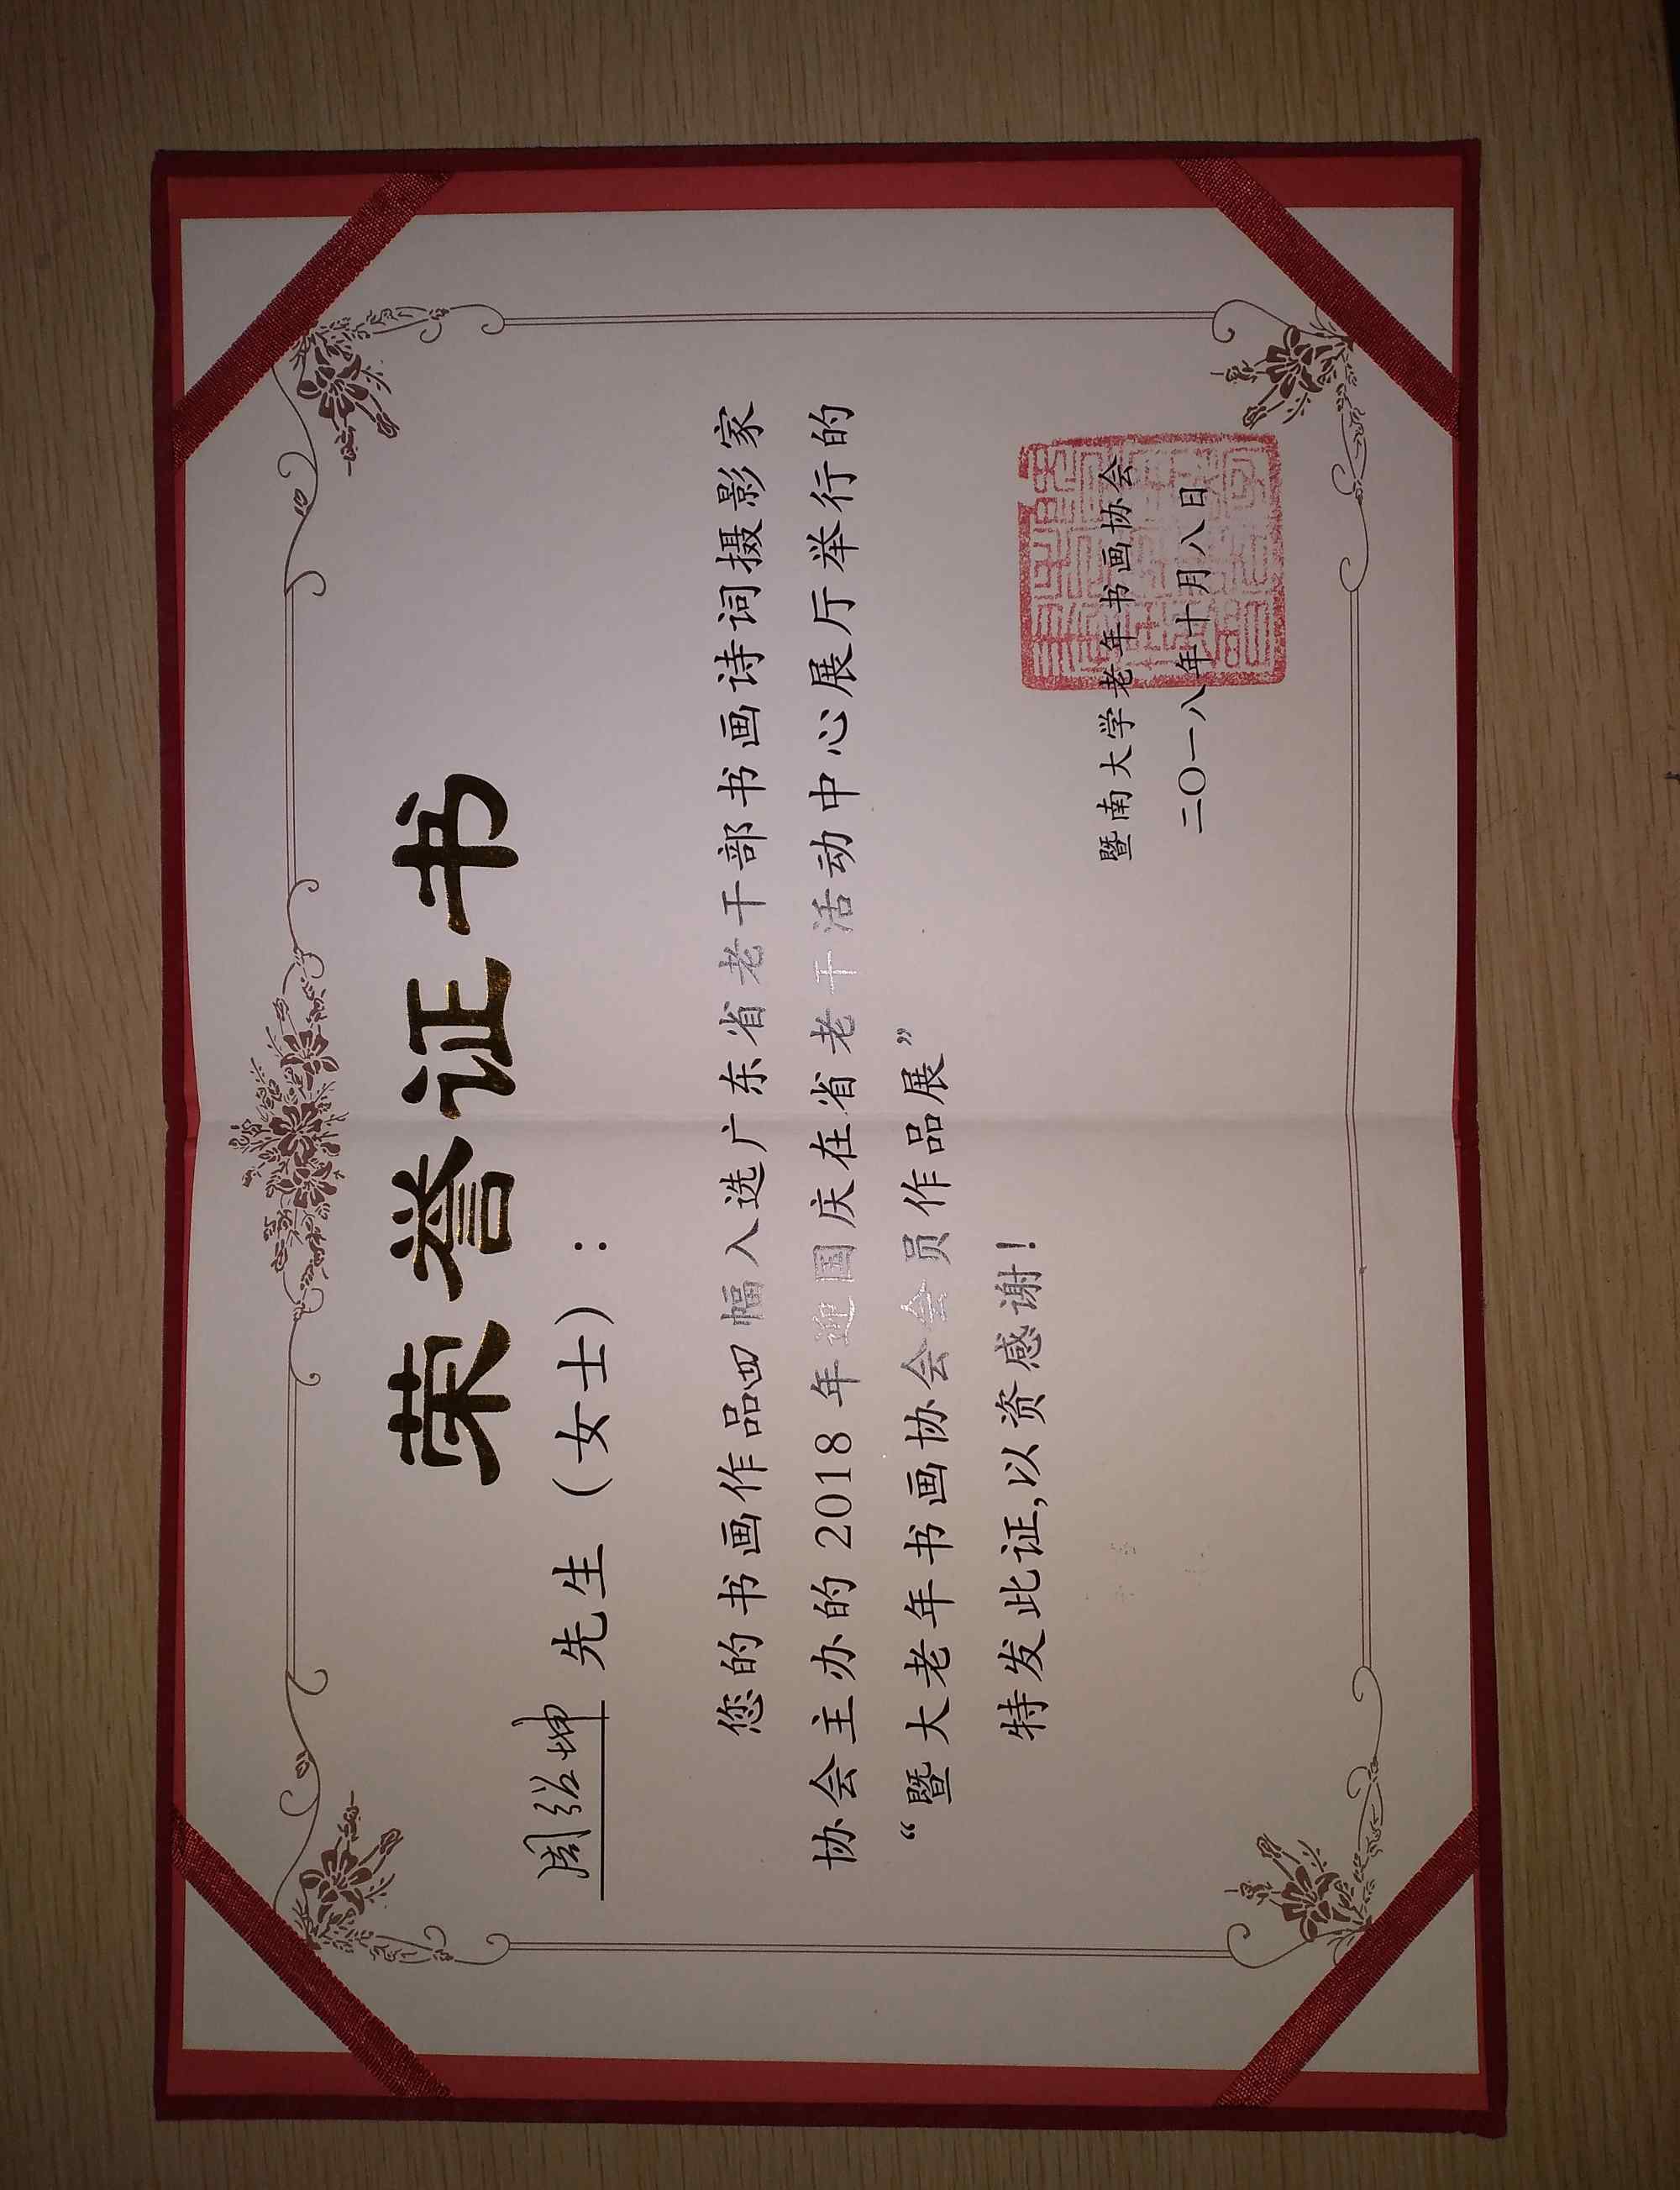 荣誉证书
周弘坤先生（女士）：
您的书画作品四幅入选广东省老干部书画诗词摄影家
协会主办的2018年迎国庆在省老干活动中心展厅举行的
“暨大老年书画协会会员作品展”
特发此证,以资感谢！
暨南大学老年书画协会
二〇一八年十月八日